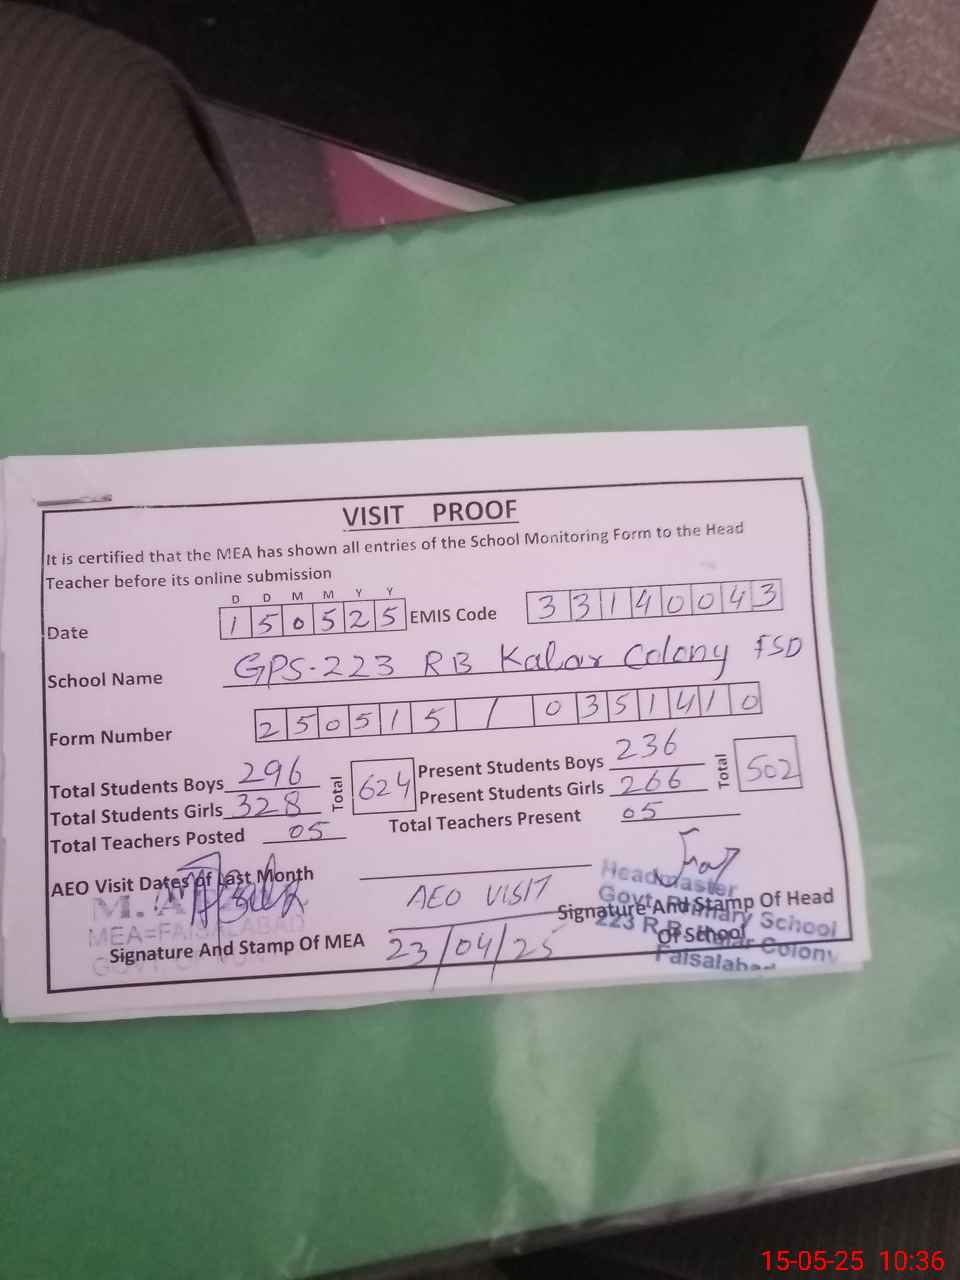 VISIT PROOF
It is certified that the MEA has shown all entries of the School Monitoring Form to the Head
Teacher before its online submission
D D M M Y Y
Date 150525 EMIS Code 33140043
School Name GPS-223 RB Kalar Colony FSD
Form Number 250515/0351410
Total Students Boys 296 Total 624 Present Students Boys 236 Total 502
Total Students Girls 328 Present Students Girls 266
Total Teachers Posted 05 Total Teachers Present 05
AEO Visit Dates of Last Month
AEO VISIT
23/04/25
M.
MEA=FAISALABAD
Signature And Stamp Of MEA
Headmaster
Govt. Primary School
223 R.B. Colony
Faisalabad
Signature And Stamp Of Head
Of School
15-05-25 10:36